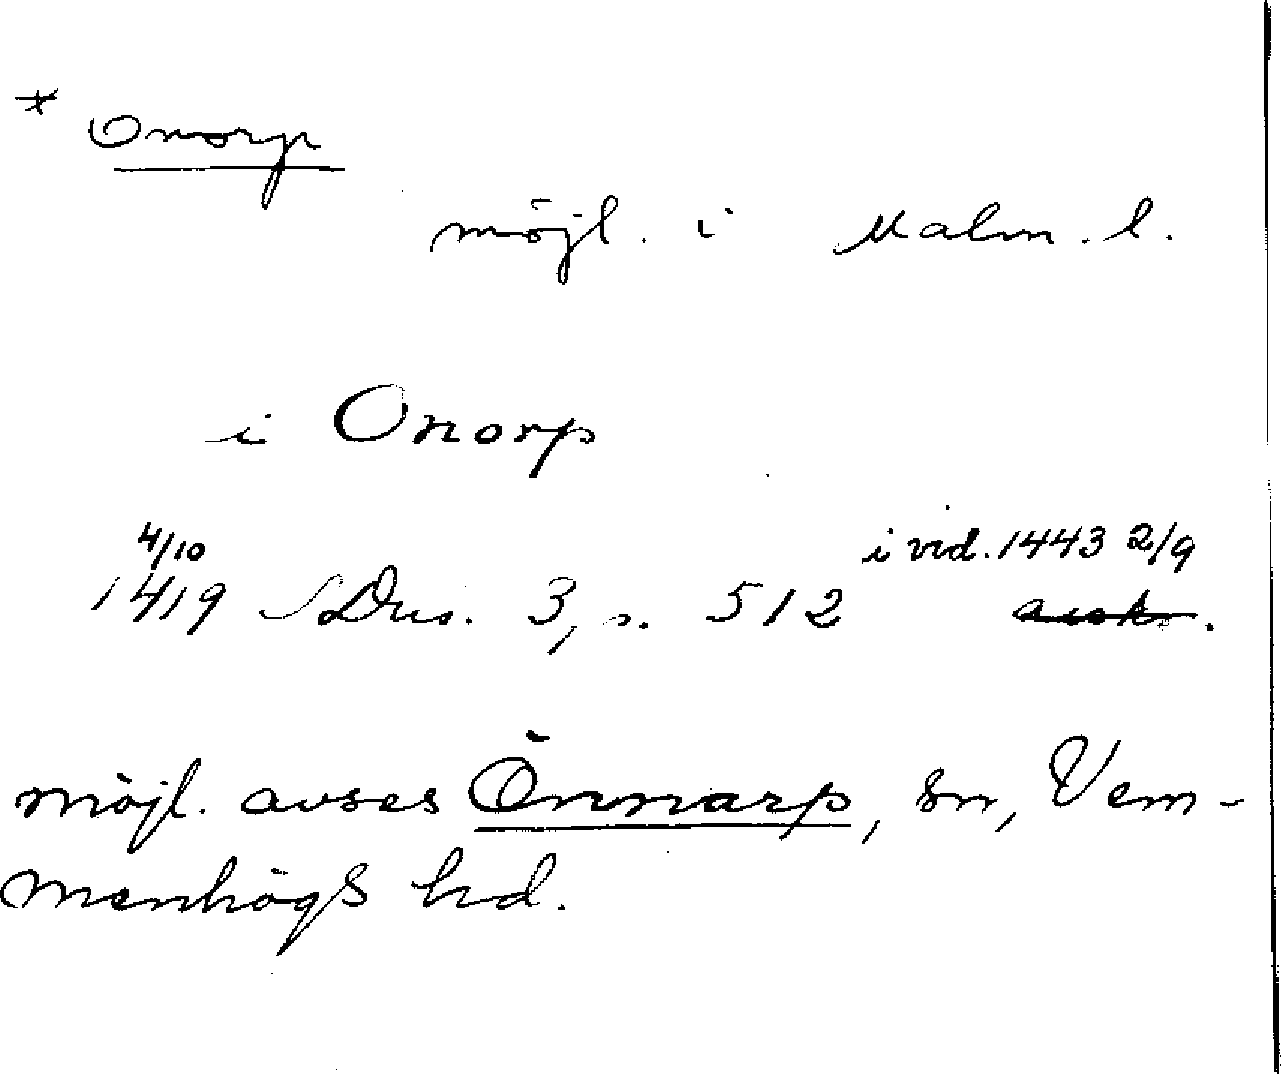 * Onorp
möjl. i Malm. l.
i Onorp
4/10 i vid. 1443 2/9
1419 SDns. 3, s. 512 avsk.
möjl. avses Önnarp, sn, Vem-
menhögs hd.